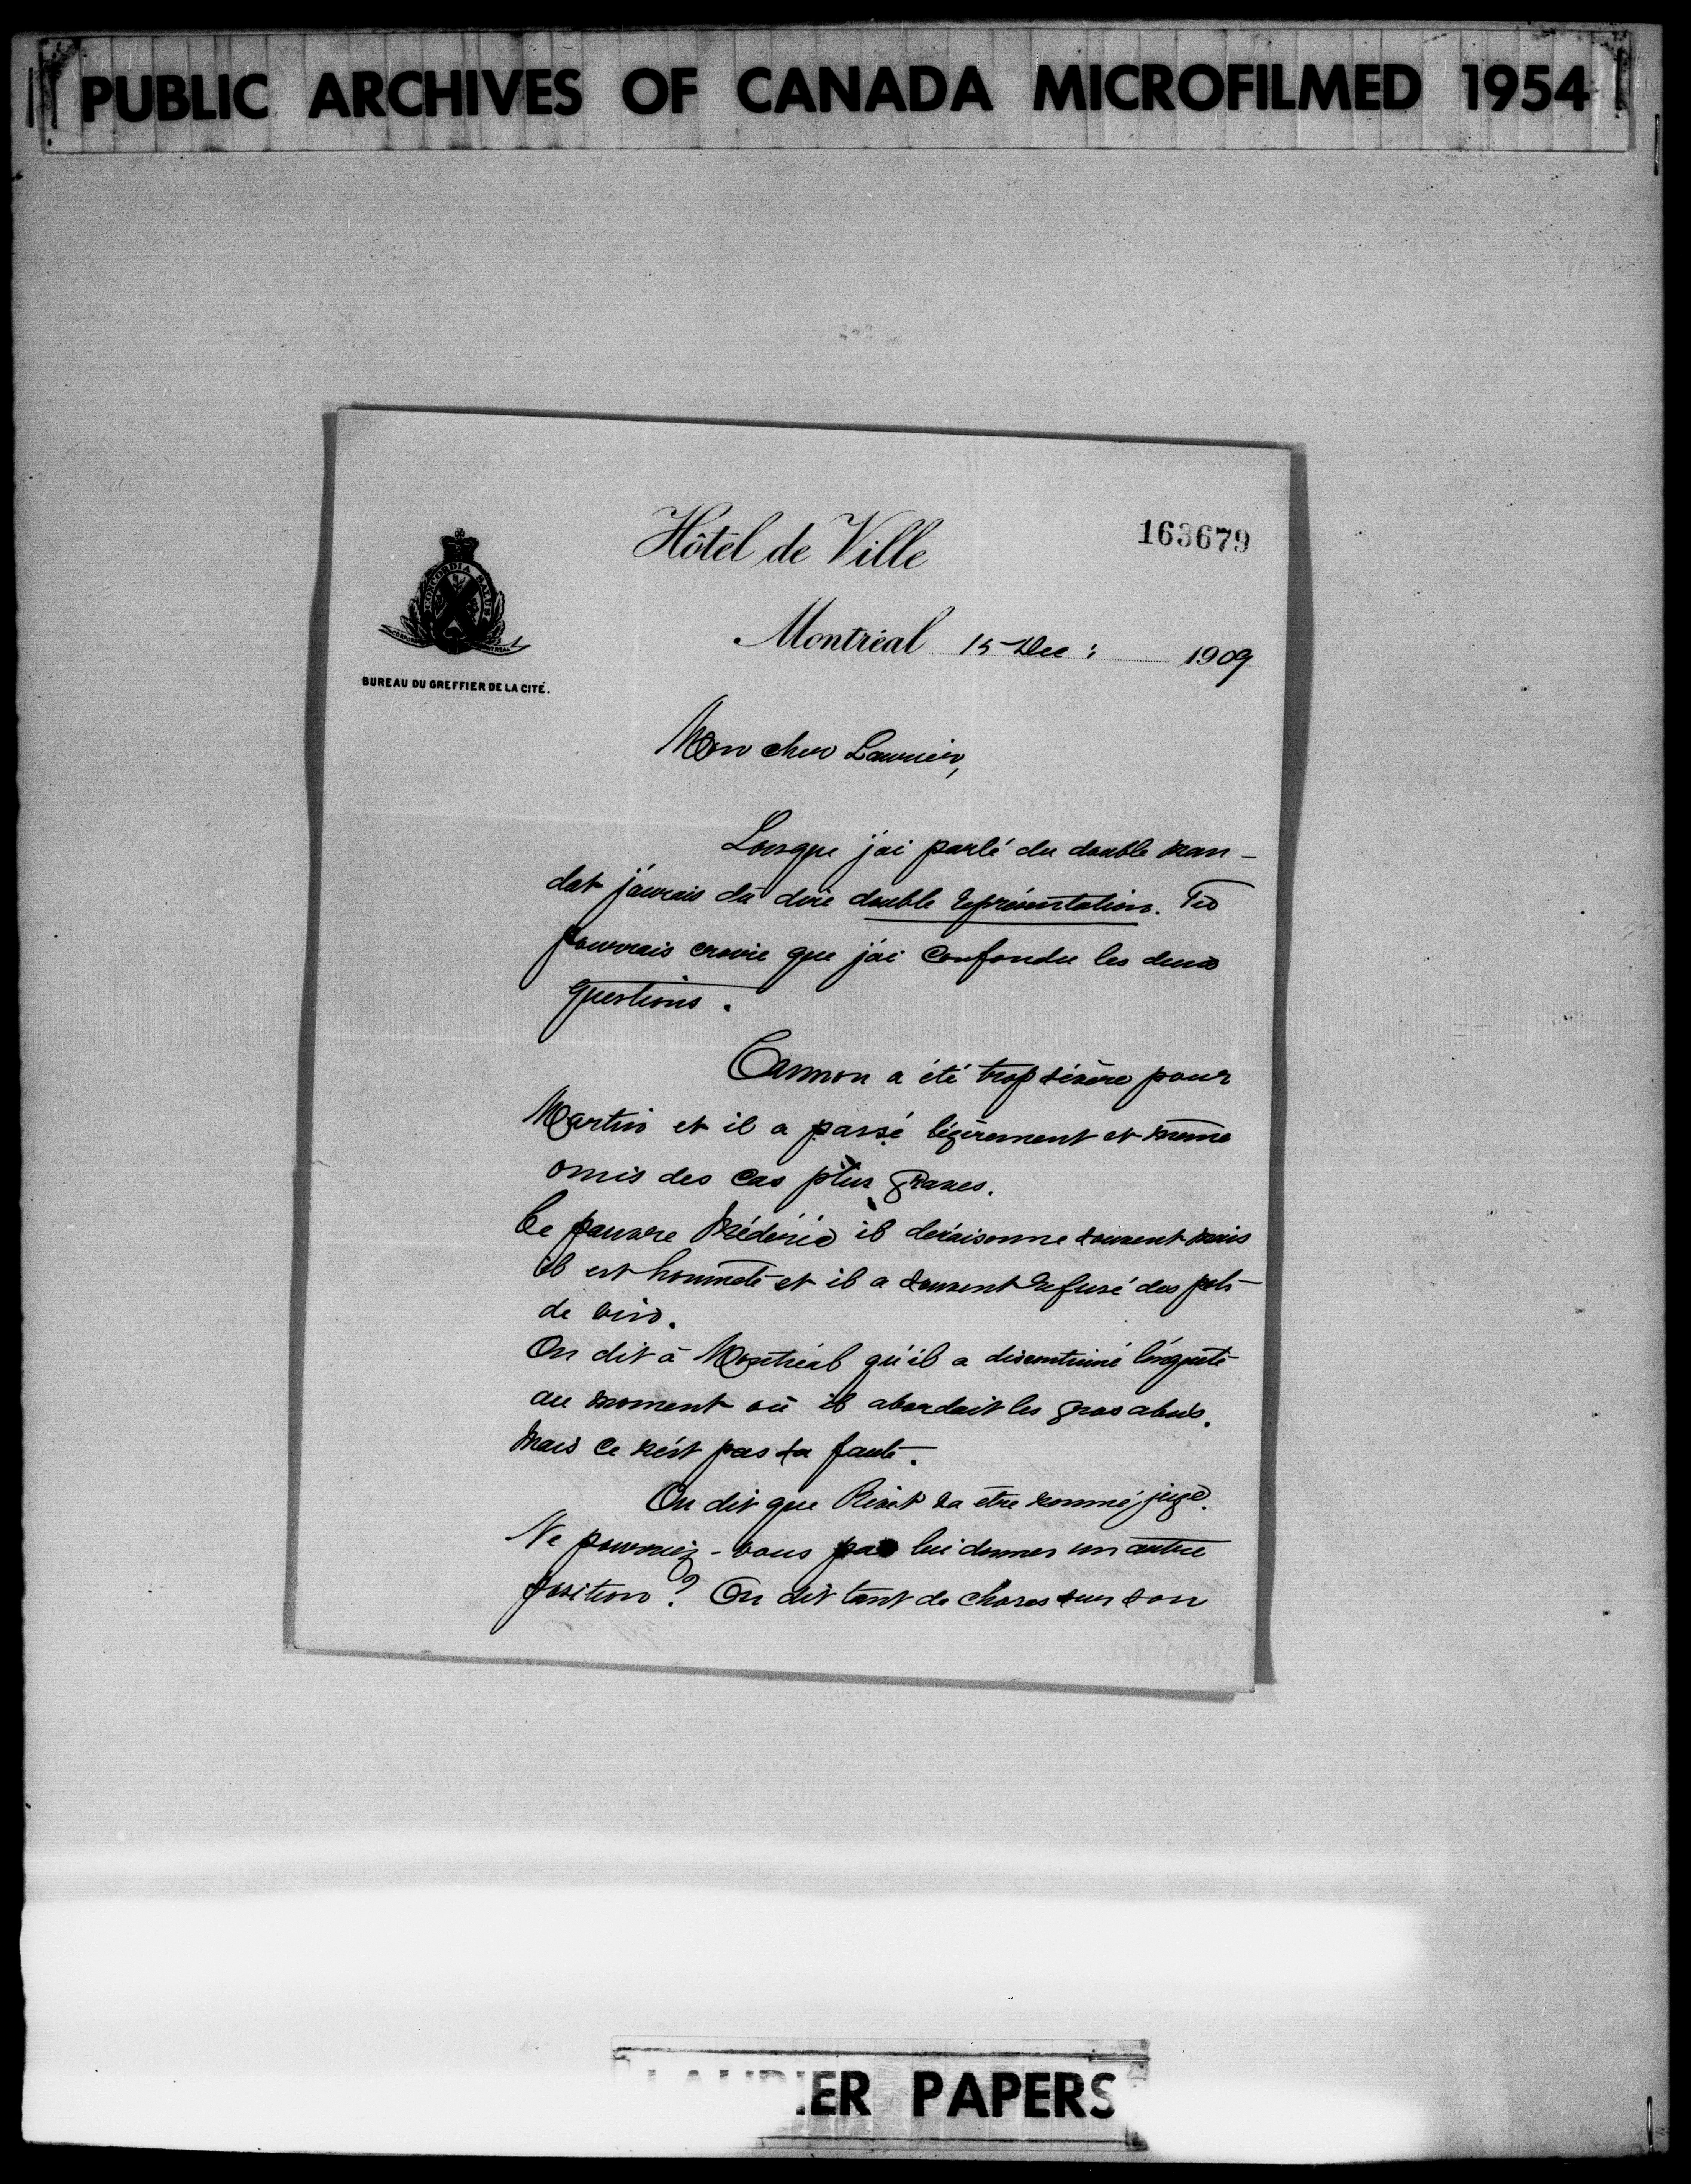 PUBLIC ARCHIVES OF CANADA MICROFILMED 1954
163679
Hôtel de Ville
CONCORDIA SALUS
Montréal 15 Dec: 1909
BUREAU DU GREFFIER DE LA CITÉ.
Mon cher Laurier,
Lorsque j'ai parlé du double man-
dat j'aurais dû dire double représentation. Tu
pourrais croire que j'ai confondu les deux
questions.
Cannon a été trop sévère pour
Martin et il a passé légèrement et même
omis des cas plus graves.
Ce pauvre Médéric il déraisonne souvent mais
il est honnête et il a souvent refusé des pots
de vin.
On dit à Montréal qu'il a discontinué l'enquête
au moment où il abordait les gros abus.
Mais ce n'est pas sa faute.
On dit que va être nommé juge.
Ne pourriez-vous pas lui donner un autre
position? On dit tant de choses sur son
LAURIER PAPERS